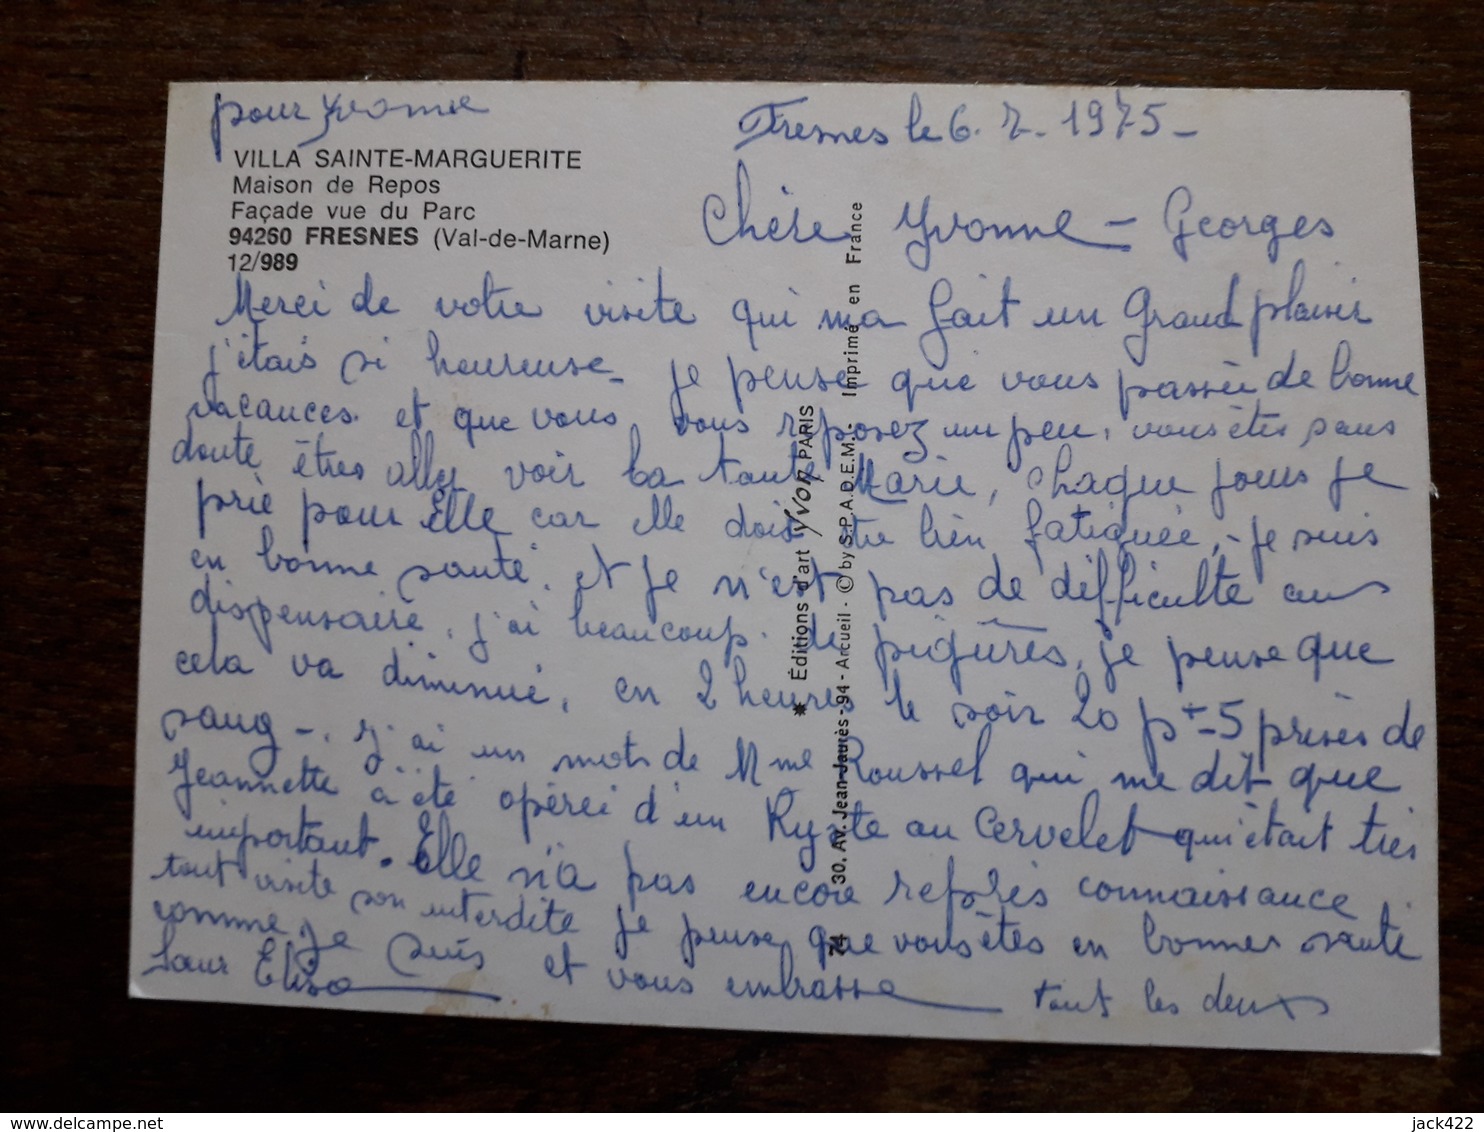 pour Yvonne
VILLA SAINTE-MARGUERITE
Maison de Repos
Façade vue du Parc
94260 FRESNES (Val-de-Marne)
12/989
Fresnes le 6. 7. 1975 -
Chère Yvonne - Georges
Merci de votre visite qui ma fait un Grand plaisir
j'étais si heureuse - je pense que vous passée de bonne
vacances. et que vous vous reposez un peu, vous êtes sans
doute êtres allez voir la tante Marie, chaque jours je
prie pour Elle car elle dois être bien fatiquée, - je suis
en bonne santé. et je n'est pas de difficulté au
dispensaire, j'ai beaucoup de piqûres, je pense que
cela va diminué, en 2 heures le soir 20 p + - 5 prises de
sang -. j'ai un mots de Mme Roussel qui me dit que
Jeannette à été opérei d'un Kyste au Cervelet qui était très
important. Elle n'a pas encore repris connaissance
tout visite son interdite je pense que vous êtes en bonnes santé
comme je suis et vous embrasse tout les deux
Sœur Elisa
✷ Éditions d'art Yvon PARIS
30, Av. Jean-Jaurès - 94 - Arcueil - © by S.P.A.D.E.M. - Imprimé en France
74
delcampe.net
jack422